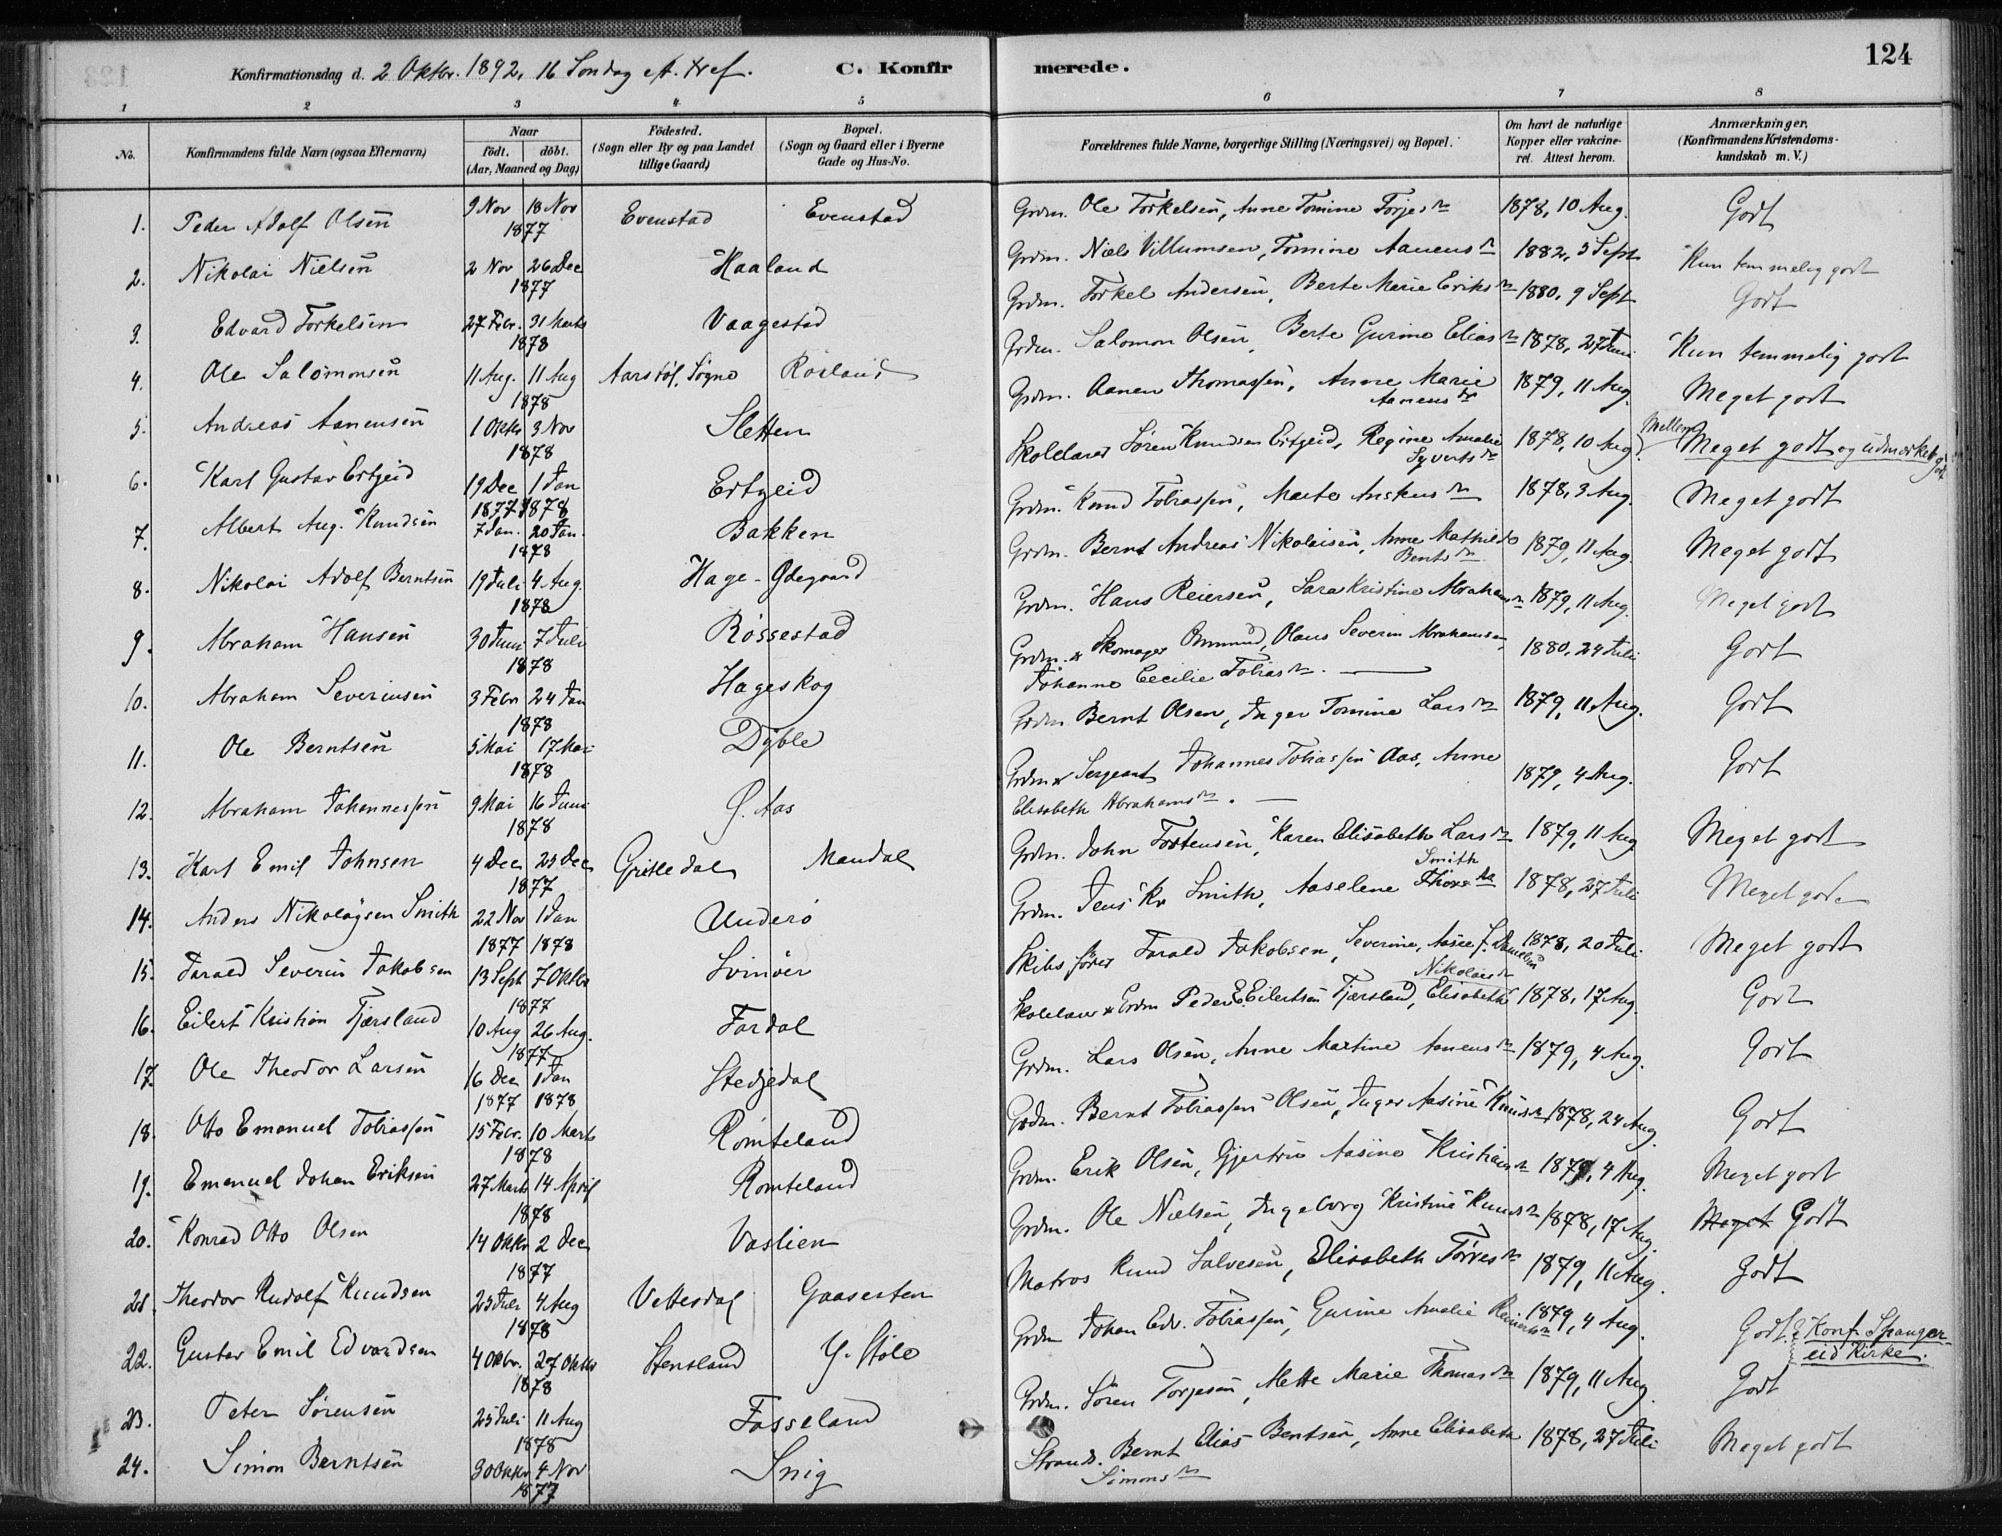 124
Konfirmationsdag d. 2 Oktbr. 1892, 16 Søndag eft. tref. C. Konfirmerede.
1 2 3 4 5 6 7 8
No. Konfirmandens fulde Navn (ogsaa Efternavn) Naar født. døbt. (Aar, Maaned og Dag) Fødested. (Sogn eller By og paa Landet tillige Gaard) Bopæl. (Sogn og Gaard eller i Byerne Gade og Hus-No. Forældrenes fulde Navne, borgerlige Stilling (Næringsvei) og Bopæl. Om havt de naturlige Kopper eller vakcineret. Attest herom. Anmærkninger. (Konfirmandens Kristendomskundskab m. V.)
1. Peder Adolf Olsen 9 Nov 18 Nov 1877 Evenstad Evenstad Grdm. Ole Torkelsen, Anne Tomine Torjesdr 1878, 10 Aug. Godt
2. Nikolai Nielsen 2 Nov 26 Dec 1877 Haaland Grdm. Niels Villumsen, Tomine Aanensdr 1882, 5 Sept Kun temmelig godt
3. Edvard Torkelsen 27 Febr. 31 Marts 1878 Vaagestad Grdm. Torkel Andersen, Berte Marie Eriksdr 1880, 9 Sept Godt
4. Ole Salomonsen 11 Aug. 11 Aug 1878 Aarstøl, Søgne Røsland Grdm. Salomon Olsen, Berte Gurine Eliasdr 1878, 27 Juni Kun temmelig godt
5. Andreas Aanensen 1 Oktbr 3 Nov 1878 Sletten Grdm. Aanen Thomassen, Anne Marie Aanensdr 1879, 11 Aug. Meget godt
6. Karl Gustav Ertzeid 19 Dec 1 Jan 1877 1878 Ertzeid Skolelærer Søren Knudsen Ertzeid, Regine Amalie Syvertsdr 1878, 10 Aug. Mellem Meget godt og udmerket godt
7. Albert Aug. Knudsen 7 Jan. 20 Jan. 1878 Bakken Grdm. Knud Tobiassen, Marte Anskersdr 1878, 3 Aug. Meget godt
8. Nikolai Adolf Berntsen 19 Juli 4 Aug. 1878 Hage-Ødegaard Grdm. Bernt Andreas Nikolaisen, Anne Mathilde Bentsdr 1879, 11 Aug. Meget godt
9. Abraham Hansen 30 Juni 7 Juli 1878 Røssestad Grdm. Hans Reiersen, Sara Kristine Abrahamsdr 1879, 11 Aug. Meget godt
10. Abraham Severinsen 3 Febr 24 Jan 1878 Hageskog Grdm. & Skomager Ommund Olaus Severin Abrahamsen, Johanne Cecilie Tobiasdr. 1880, 24 Juli Godt
11. Ole Berntsen 5 Mai 17 Mai 1878 Dyble Grdm Bernt Olsen, Inger Tomine Larsdr 1879, 11 Aug. Godt
12. Abraham Johannessen 9 Mai 16 Juni 1878 Ø. Aas Grdm & Sergeant Johannes Tobiassen Aas, Anne Elisabeth Abrahamsdr. 1879, 4 Aug. Godt
13. Karl Emil Johnsen 4 Dec 25 Dec 1877 Gritledal Mandal Grdm. John Tostensen, Karen Elisabeth Larsdr 1879, 11 Aug Meget godt
14. Anders Nikolaysen Smith 22 Nov 1 Jan 1877 1878 Underø Grdm. Jens Kr Smith, Aaselene Smith 1878, 27 Juli Meget godt
15. Tarald Severin Jakobsen 13 Sept 7 Oktbr 1877 Svinøer Skibsfører Tarald Jakobsen, Severine, Aasee f. Danielsen 1878, 20 Juli Meget godt
16. Eilert Kristian Tjærsland 10 Aug 26 Aug. 1877 Fardal Skolelærer & Grdm Peder E. Eilertsen Tjærsland, Elisabeth Nikolaisdr 1878, 17 Aug. Godt
17. Ole Theodor Larsen 16 Dec 1 Jan 1877 1878 Stedjedal Grdm. Lars Olsen, Anne Martine Aanensdr 1879, 4 Aug. Godt
18. Otto Emanuel Tobiassen 15 Febr. 10 Marts 1878 Rømteland Grdm. Bernt Tobiassen Olsen, Inger Aasine Knudsdr 1878, 24 Aug. Godt
19. Emanuel Johan Eriksen 27 Marts 14 April 1878 Rømteland Grdm. Erik Olsen, Gjertru Aasine Kristiansdr 1879, 4 Aug. Meget godt
20. Konrad Otto Olsen 14 Oktbr 2 Dec 1877 Vaslien Grdm. Ole Nielsen, Ingeborg Kristine Knudsdr 1878, 17 Aug. Meget Godt
21. Theodor Rudolf Knudsen 25 Juli 4 Aug 1878 Vettesdal Gaaserten Matros Knud Salvesen, Elisabeth Tørresdr 1879, 11 Aug. Godt
22. Gustav Emil Edvardsen 4 Oktbr. 27 Oktbr 1878 Stensland Y. Støle Grdm Johan Edv. Tobiassen, Gurine Amalie Reiertsdr 1879, 4 Aug. Godt. Konf. Spangereid Kirke.
23. Peter Sørensen 25 Juli 11 Aug 1878 Fasseland Grdm. Søren Torjesen, Mette Marie Thomasdr 1879, 11 Aug. Godt
24. Simon Berntsen 30 Oktbr 4 Nov 1877 Snig Strands. Bernt Elias Bentsen, Anne Elisabeth Simonsdr 1878, 27 Juli Meget godt